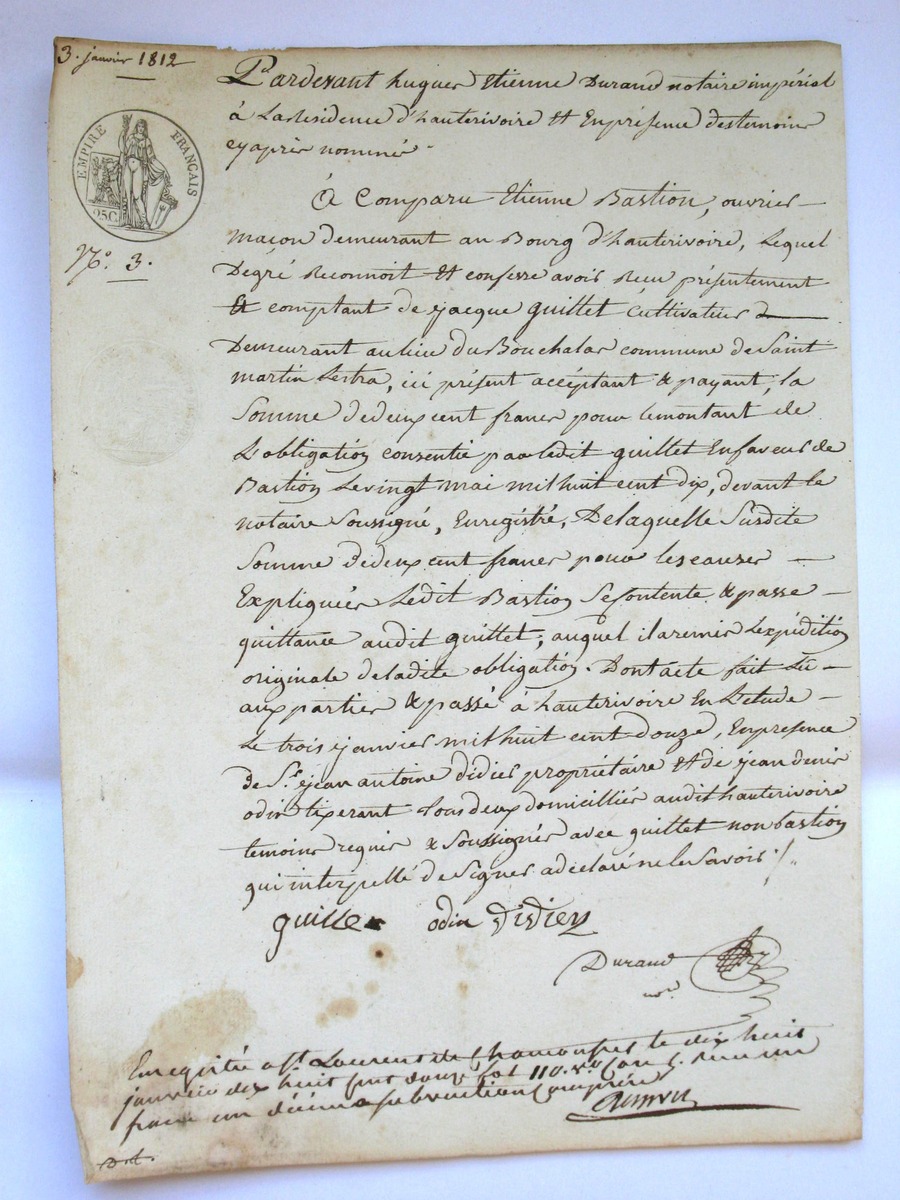 3. janvier 1812
Pardevant hugues Etienne Durand notaire impérial
à La Residence d'hauterivoire Et En présense des temoins
cy après nommés
EMPIRE FRANÇAIS
25C.
N.º 3.
A Comparu Etienne Bastion, ouvrier
maçon demeurant au Bourg d'hauterivoire, Lequel
Degré Reconnoit Et confesse avoir Recu présentement
Et comptant de jacque guillet Cultivateur d
Demeurant au lieu du Bouchalas commune de Saint
martin Lestra, ici présent accéptant & payant, la
Somme de deux cent francs pour le montant de
L'obligation consentie par ledit guillet En faveur de
Bastion Le vingt mai mil huit cent dix, devant le
notaire Soussigné, Enregistré, De laquelle Susdite
Somme de deux cent francs pour les causes
Expliquées Ledit Bastion Se contente & passe
quittance audit guillet, auquel il a remis L'expédition
originale de ladite obligation. Dont acte fait Lu
aux parties & passé à hauterivoire En L'etude
Le trois janvier mil huit cent douze, En presence
de Sr. jean antoine didier propriétaire Et de jean denis
odin tixerant tous deux domicilliés audit hauterivoire
temoins requis & Soussignés avec guillet non bastion
qui interpellé de Signer a declaré ne le Savoir ./.
guillet odin didier
Durand
nre
Enregistré a St. Laurent de Chamousset le dix huit
janvier dix huit cent douze fol 110. vo Case 5. Reçu un
franc un décime subvention Comprise
D. t.